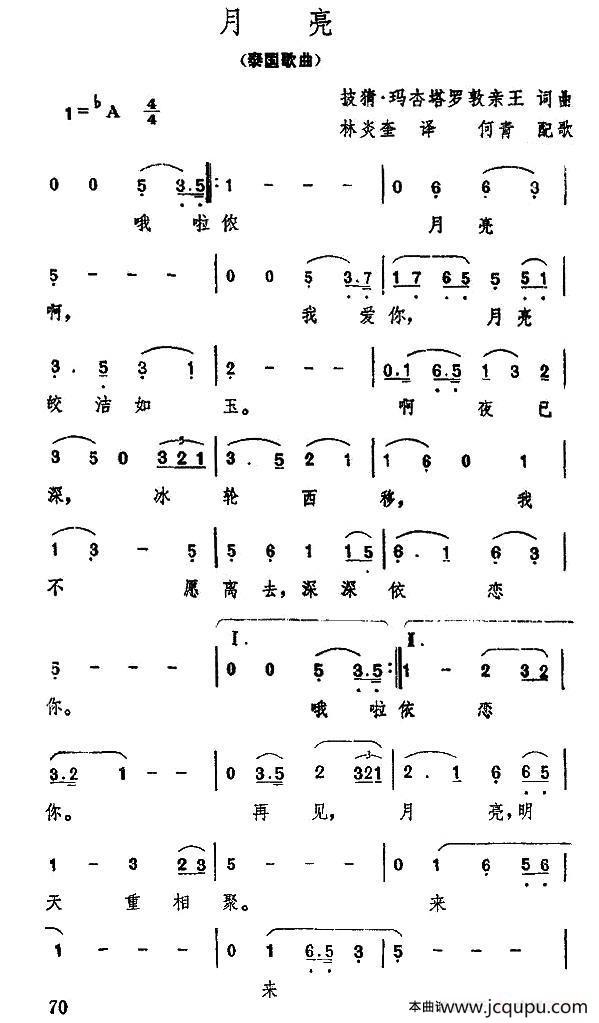 月 亮
（泰国歌曲）
1=♭A 4/4
披猜·玛杏塔罗敦亲王 词曲
林炎奎 译 何青 配歌
0 0 5 3.5 :1 - - - 0 6 6 3
哦 啦 侬 月 亮
5 - - - 0 0 5 3.7 17 65 5 51
啊， 我 爱 你， 月 亮
3. 5 3 1 2 - - - 0.1 6.5 1 3 2
皎 洁 如 玉。 啊 夜 已
3 5 0 321 3. 5 2 1 1 6 0 1
深， 冰 轮 西 移， 我
1 3 - 5 5 6 1 15 6. 1 6 3
不 愿 离 去，深 深 依 恋
I. II.
5 - - - 0 0 5 3.5 :1 - 2 32
你。 哦 啦 依 恋
3.2 1 - - 0 3.5 2 321 2. 1 6 65
你。 再 见， 月 亮，明
1 - 3 23 5 - - - 0 1 6 56
天 重 相 聚。 来
1 - - - 0 1 6.5 3 5 - - -
来
70
本曲谱
www.jcqupu.com